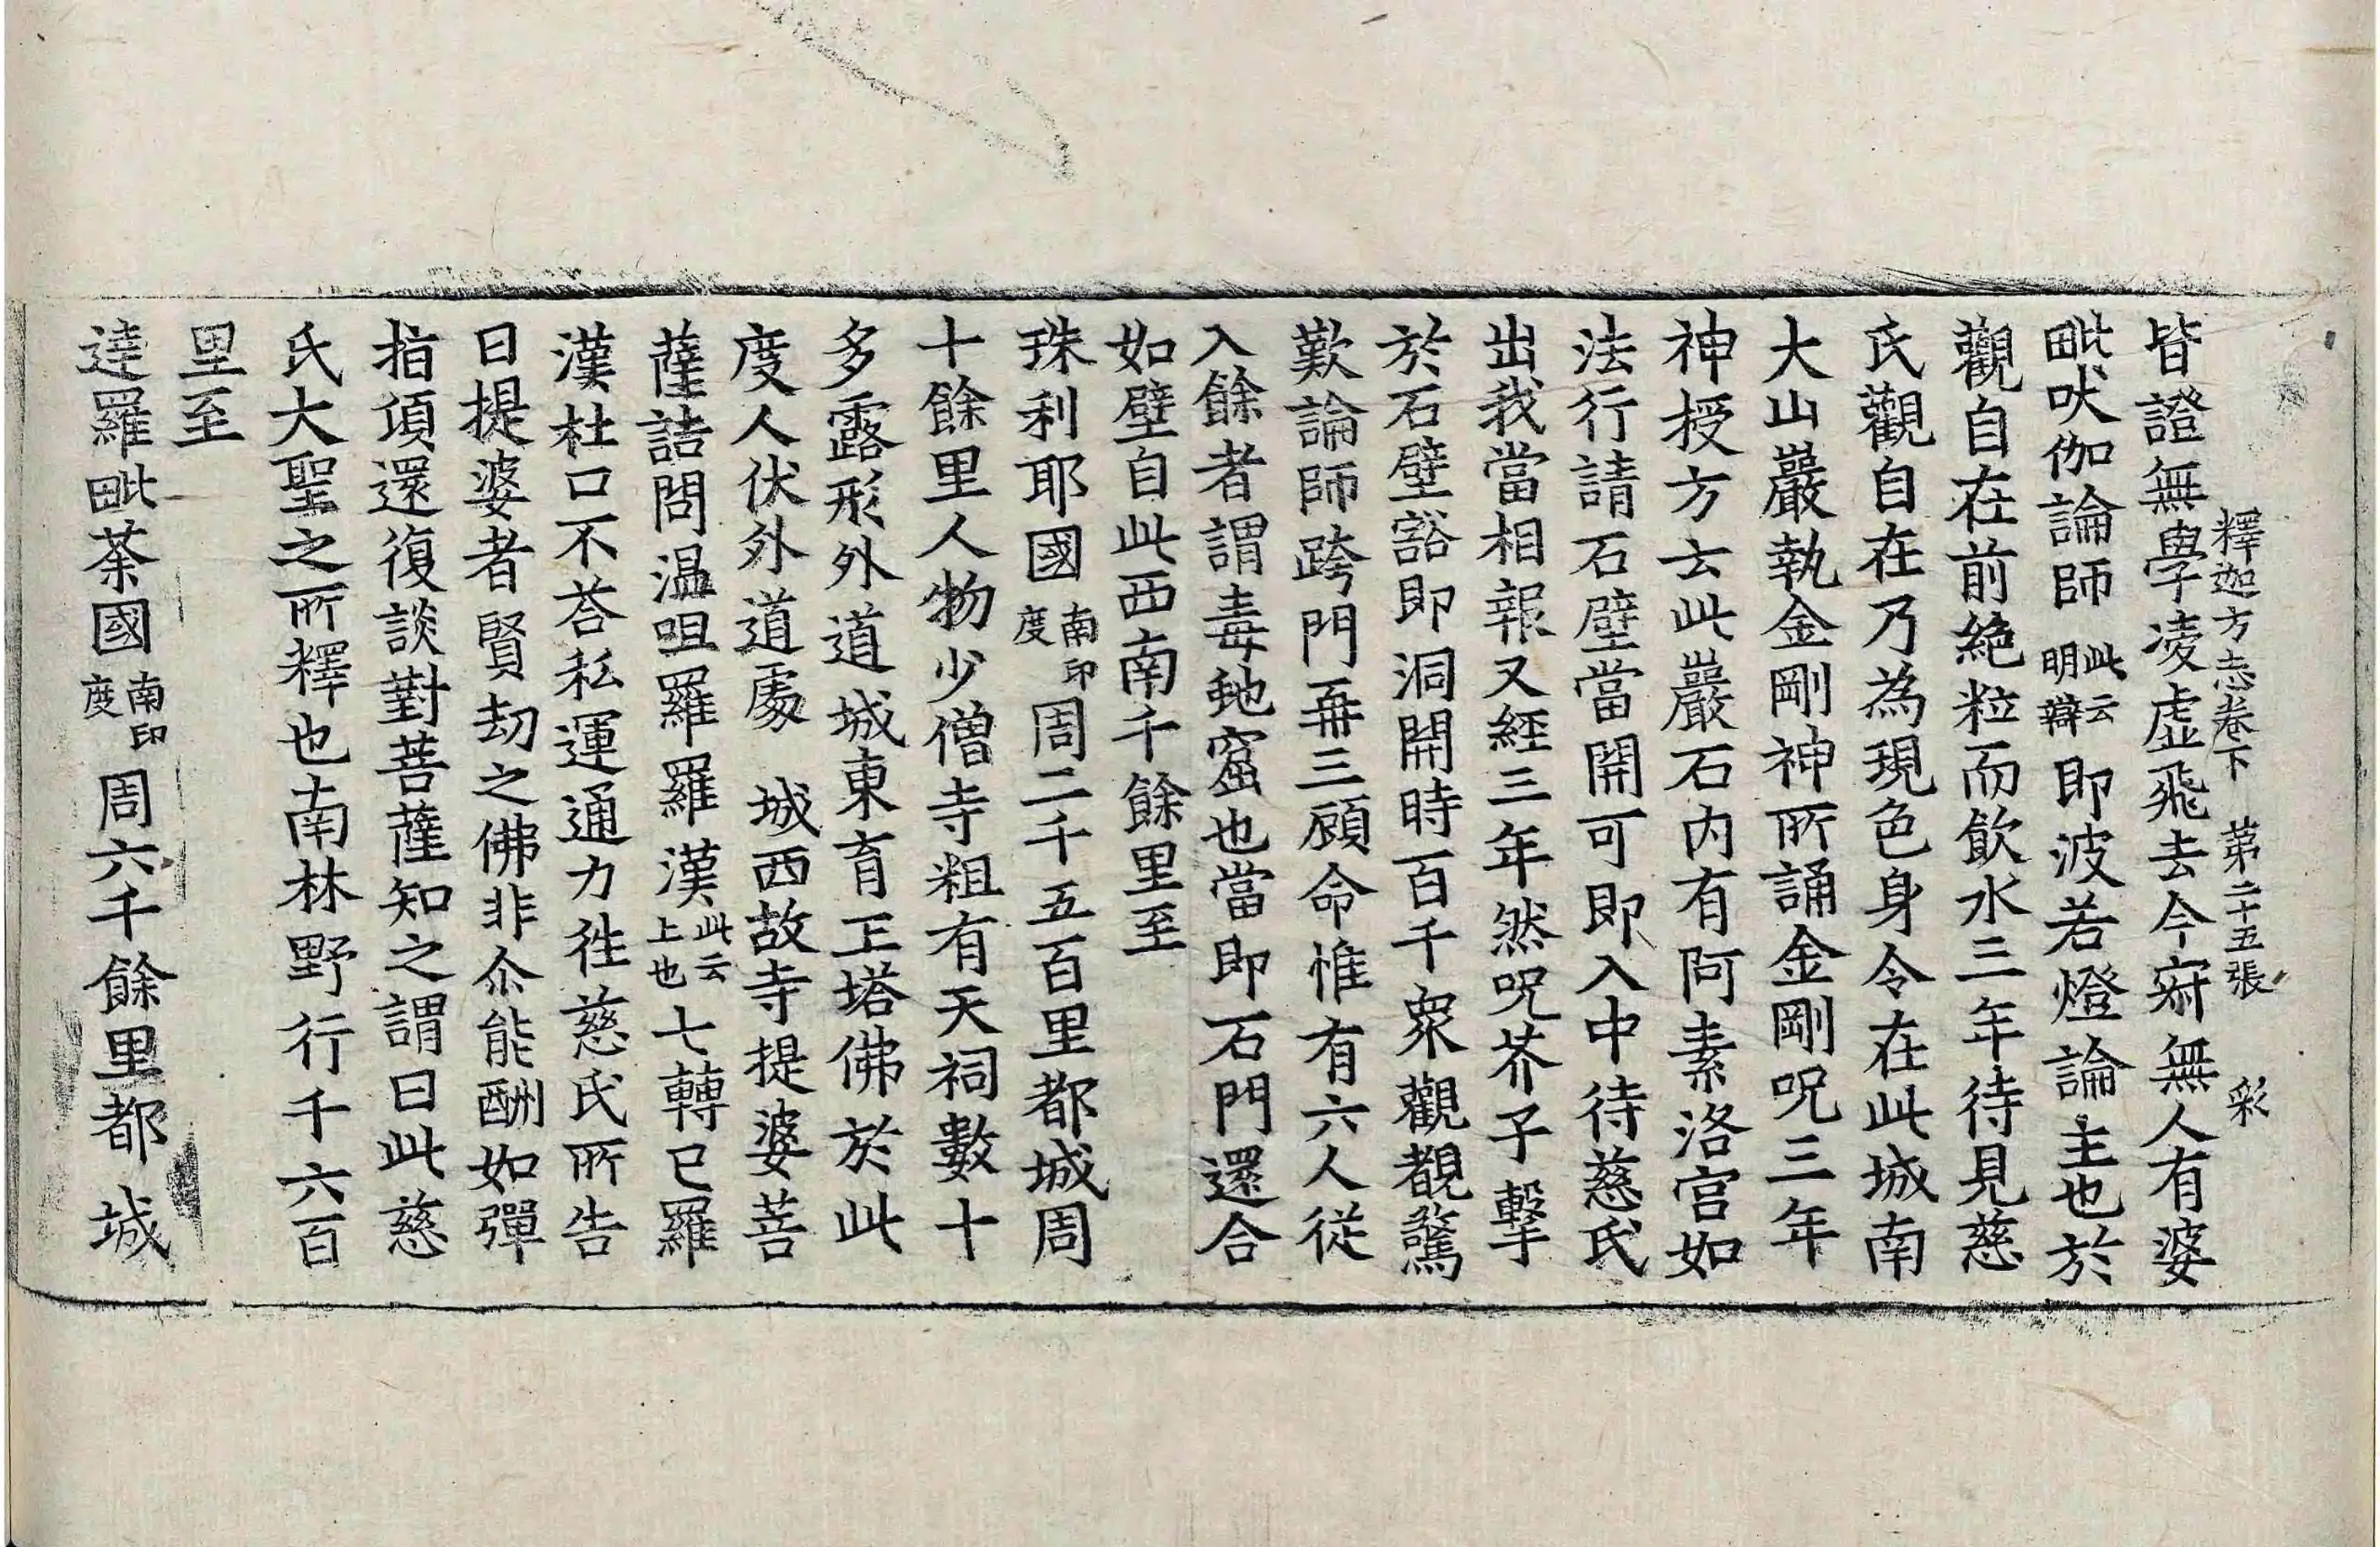 釋迦方志卷下　第二十五張　彩
皆證無學凌虛飛去今寂無人有婆
毗吠伽論師此云明辯即波若燈論主也於
觀自在前絶粒而飲水三年待見慈
氏觀自在乃為現色身令在此城南
大山巖執金剛神所誦金剛呪三年
神授方云此巖石内有阿素洛宮如
法行請石壁當開可即入中待慈氏
出我當相報又經三年然呪芥子擊
於石壁豁即洞開時百千衆觀覩驚
歎論師跨門再三顧命惟有六人從
入餘者謂毒虵窟也當即石門還合
如壁自此西南千餘里至
珠利耶國南印度周二千五百里都城周
十餘里人物少僧寺粗有天祠數十
多露形外道城東育王塔佛於此
度人伏外道處　城西故寺提婆菩
薩詰問溫呾羅羅漢此云上也七轉已羅
漢杜口不荅私運通力徃慈氏所告
曰提婆者賢劫之佛非尒能酬如彈
指頃還復談對菩薩知之謂曰此慈
氏大聖之所釋也南林野行千六百
里至
達羅毗荼國南印度周六千餘里都城